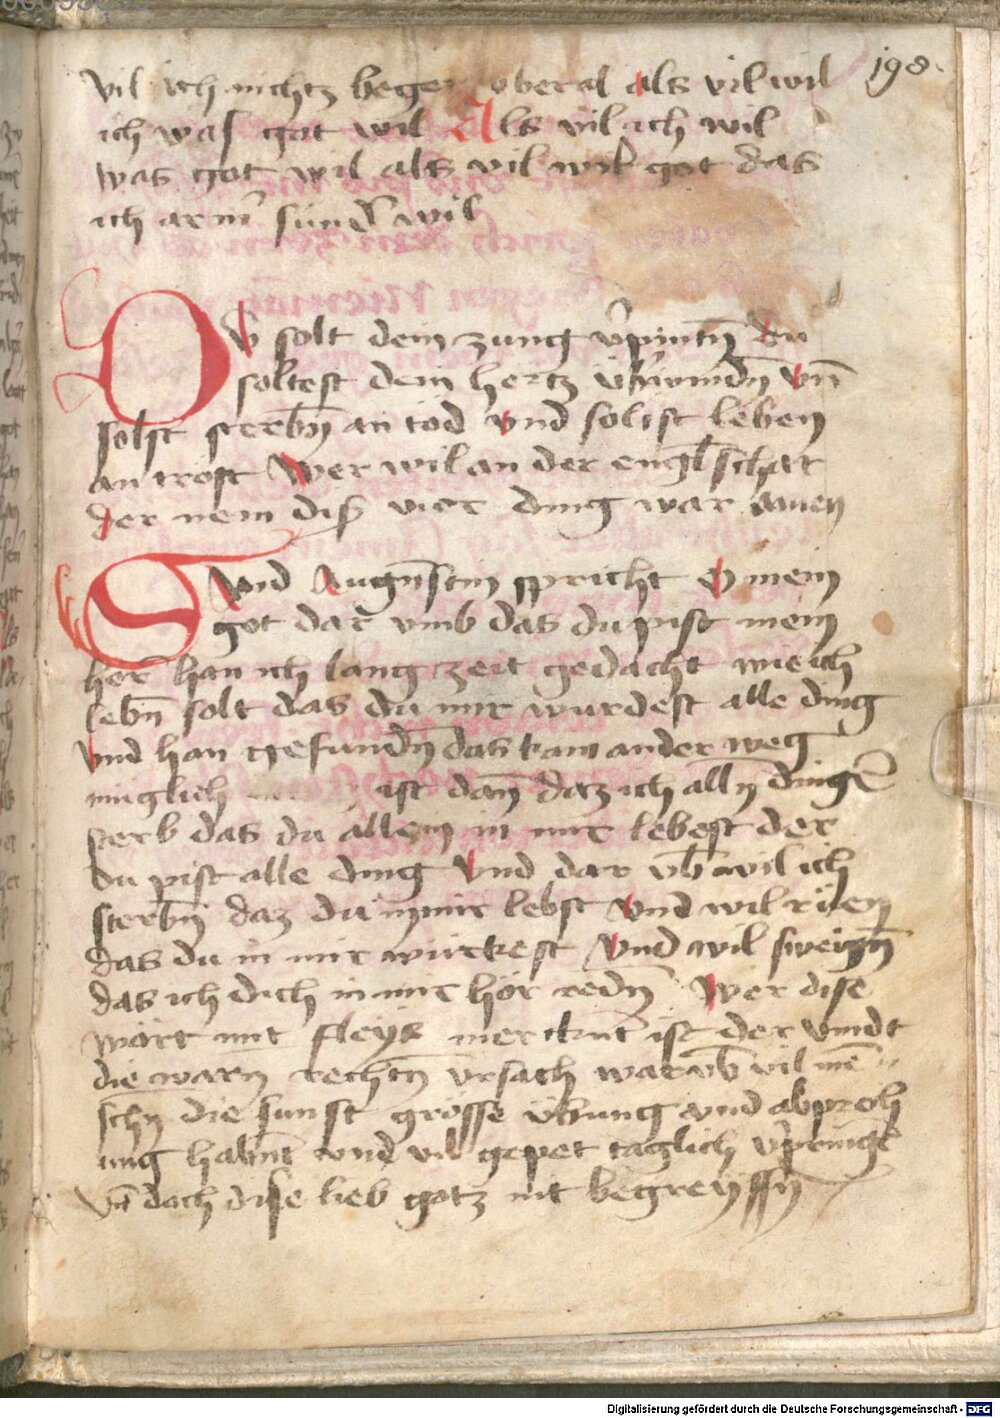 198
vil ich nichtz beger vberal als vil wil
ich was got wil Als vil ich wil
was got wil als vil wil got das
ich arm̄ sünd̄ wil
Dv̄ solt dein zung v̄pintn̄ du
soltest dein hertz üb̄windn̄ vn̄
solst sterbn̄ an tod vnd solist leben
an trost Wer wil an der engl̄ schar
der nem diß vier ding war Amen
Sand Augustin spricht O mein
got dar vmb das du pist mein
her̄ han ich lang zeit gedacht wie ich
lebn̄ solt das du mir wurdest alle ding
vnd han gefundn̄ das kain ander weg
müglich ist dan̄ daz ich alln̄ dingē
sterb das du allein in mir lebest der
du pist alle ding vnd dar vb̄ wil ich
sterbn̄ daz du in mir lebst vnd wil rüen
das du in mir würckest vnd wil sweign̄
das ich dich in mir hör redn̄ Wer dise
wort mit fleys merckn̄t ist der vindt
die warn̄ rechtn̄ vrsach warvb̄ vil mē
schn̄ die sunst grosse übung vnd abprech
ung habn̄t vnd vil gepet täglich v̄pringē
vn̄ doch dise lieb gotz nit begreyffn̄
Digitalisierung gefördert durch die Deutsche Forschungsgemeinschaft - DFG